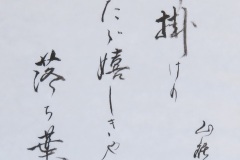 掛けり
たゞ嬉しきや
落ち葉